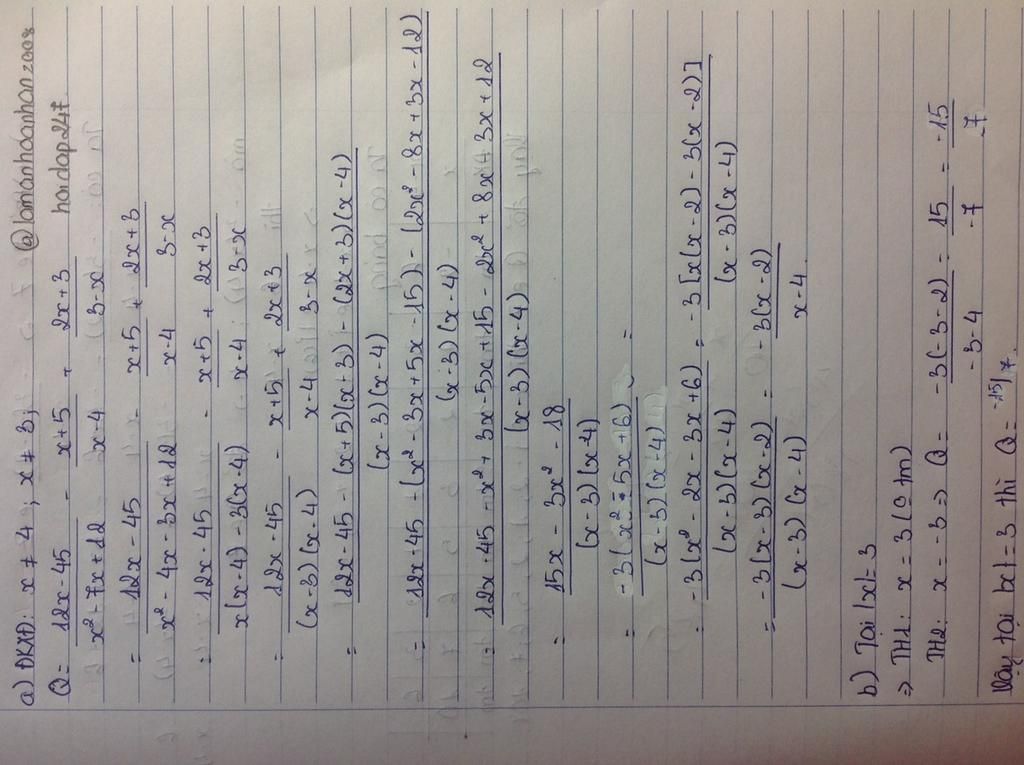 a) ĐKXĐ: x ≠ 4 ; x ≠ 3; @lamlanhdanhan2008
Q = (12x - 45)/(x² - 7x + 12) - (x+5)/(x-4) + (2x+3)/(3-x) hoidap247
= (12x - 45)/(x² - 4x - 3x + 12) - (x+5)/(x-4) + (2x+3)/(3-x)
= (12x - 45)/(x(x-4) - 3(x-4)) - (x+5)/(x-4) + (2x+3)/(3-x)
= (12x - 45)/((x-3)(x-4)) - (x+5)/(x-4) + (2x+3)/(3-x)
= (12x - 45 - (x+5)(x+3) - (2x+3)(x-4))/((x-3)(x-4))
= (12x - 45 - (x² - 3x + 5x - 15) - (2x² - 8x + 3x - 12))/((x-3)(x-4))
= (12x - 45 - x² + 3x - 5x + 15 - 2x² + 8x - 3x + 12)/((x-3)(x-4))
= (15x - 3x² - 18)/((x-3)(x-4))
= (-3(x² - 5x + 6))/((x-3)(x-4)) =
= (-3(x² - 2x - 3x + 6))/((x-3)(x-4)) = (-3[x(x-2) - 3(x-2)])/((x-3)(x-4))
= (-3(x-3)(x-2))/((x-3)(x-4)) = (-3(x-2))/(x-4)
b) Tại |x| = 3
⇒ TH1: x = 3 (o tm)
TH2: x = -3 ⇒ Q = (-3(-3-2))/(-3-4) = 15/-7 = -15/7
Vậy tại |x| = 3 thì Q = -15/7.